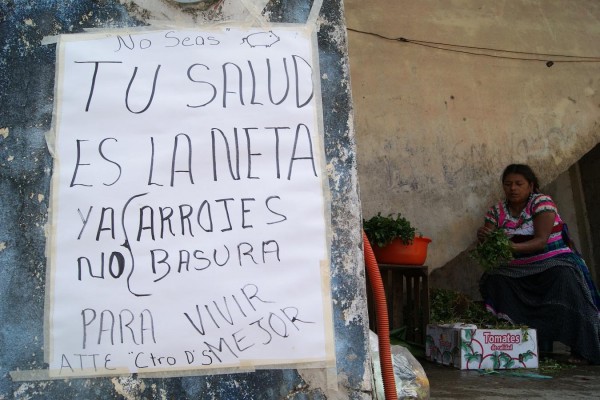 No Seas
TU SALUD
ES LA NETA
YA ARROJES
NO BASURA
PARA VIVIR
MEJOR
ATTE "Ctro D'S
Tomates
de calidad